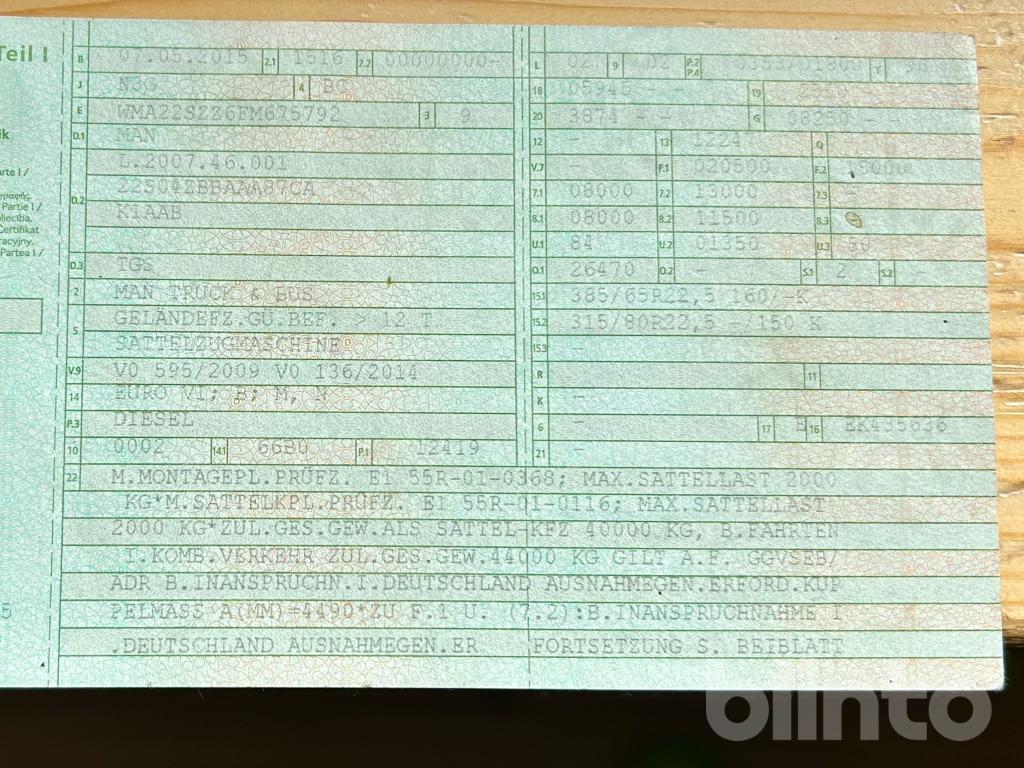 Teil I
B 07.05.2015 2.1 1516 2.2 00000000-
J N3G 4 BC
E WMA22SZZ6FM675792 3 9
D.1 MAN
L.2007.46.001
D.2
K1AAB
D.3 TGS
2 MAN TRUCK & BUS
5 GELÄNDEFZ.GÜ.BEF. > 12 T
SATTELZUGMASCHINE
V.9 VO 595/2009 VO 136/2014
14 EURO VI; B; M, N
P.3 DIESEL
10 0002 14.1 66B0 P.1 12419
L 02 9 02 P.2 P.4 T
18 05945 - - 19
20 3874 - - G
12 - 13 Q
V.7 - F.1 020500 F.2 18000
7.1 08000 7.2 13000 7.3 -
8.1 08000 8.2 11500 8.3
U.1 84 U.2 01350 U.3 80
O.1 26470 O.2 - S.1 2 S.2 -
15.1 385/65R22,5 160/-K
15.2 315/80R22,5 -/150 K
15.3 -
R 11
K -
6 - 17 E 16
21 -
22 M.MONTAGEPL.PRÜFZ. E1 55R-01-0368; MAX.SATTELLAST 2000
KG*M.SATTELKPL.PRÜFZ. E1 55R-01-0116; MAX.SATTELLAST
2000 KG*ZUL.GES.GEW.ALS SATTEL-KFZ 40000 KG, B.FAHRTEN
I.KOMB.VERKEHR ZUL.GES.GEW.44000 KG GILT A.F. GGVSEB/
ADR B.INANSPRUCHN.I.DEUTSCHLAND AUSNAHMEGEN.ERFORD.KUP
PELMASS A(MM)=4490*ZU F.1 U. (7.2):B.INANSPRUCHNAHME I
.DEUTSCHLAND AUSNAHMEGEN.ER FORTSETZUNG S. BEIBLATT
blinto